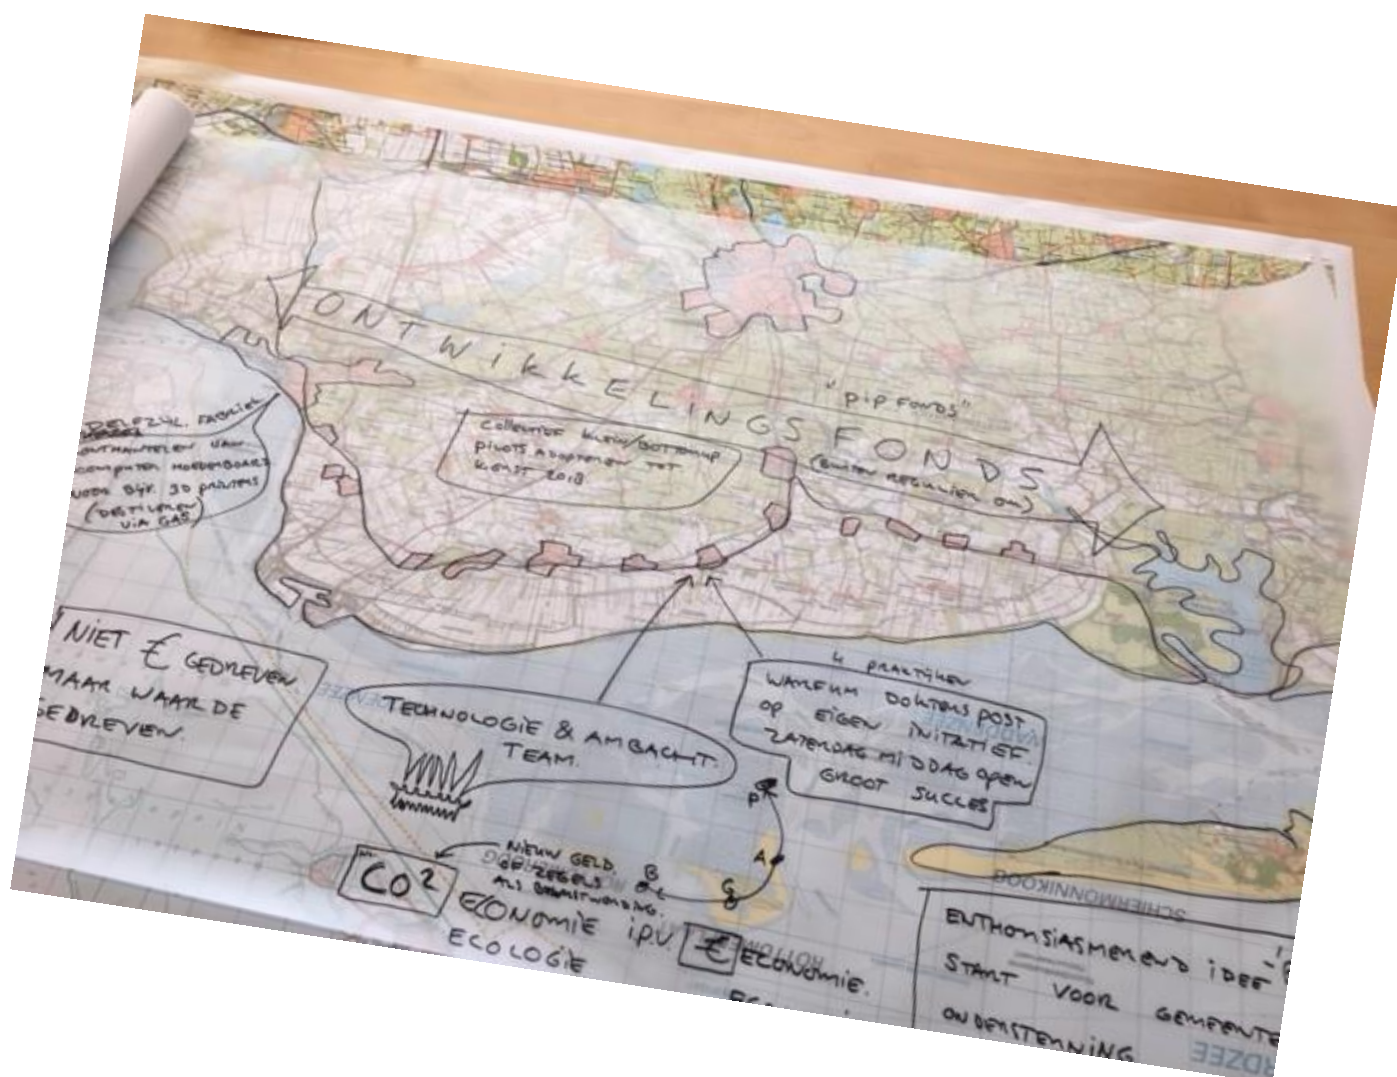 ONTWIKKELINGSFONDS
"PIP FONDS"
(BUITEN REGULIER OM)
COLLECTIEF KLEIN/BOTTOMUP
PILOTS ADOPTEREN TOT
KOMST 2018
DELFZIJL. FABRIEK
ONTMANTELEN VAN
COMPUTER MOEDERBOARDS
VOOR BIJV. 3D PRINTERS
(DESTILEREN)
VIA GAS
NIET € GEDREVEN
MAAR WAARDE
GEDREVEN.
TECHNOLOGIE & AMBACHT
TEAM.
4 PRAKTIJKEN
WAAROM DOKTERSPOST
OP EIGEN INITATIEF.
ZATERDAG MIDDAG OPEN
GROOT SUCCES
P
A
G
B
NIEUW GELD
OF ZEGELS
ALS
CO²
ECONOMIE i.P.V. € ECONOMIE.
ECOLOGIE
WADDENZEE
SCHIERMONNIKOOG
ENTHOUSIASMEREND IDEE
START VOOR GEMEENTE
ONDERSTEUNING
RDZEE